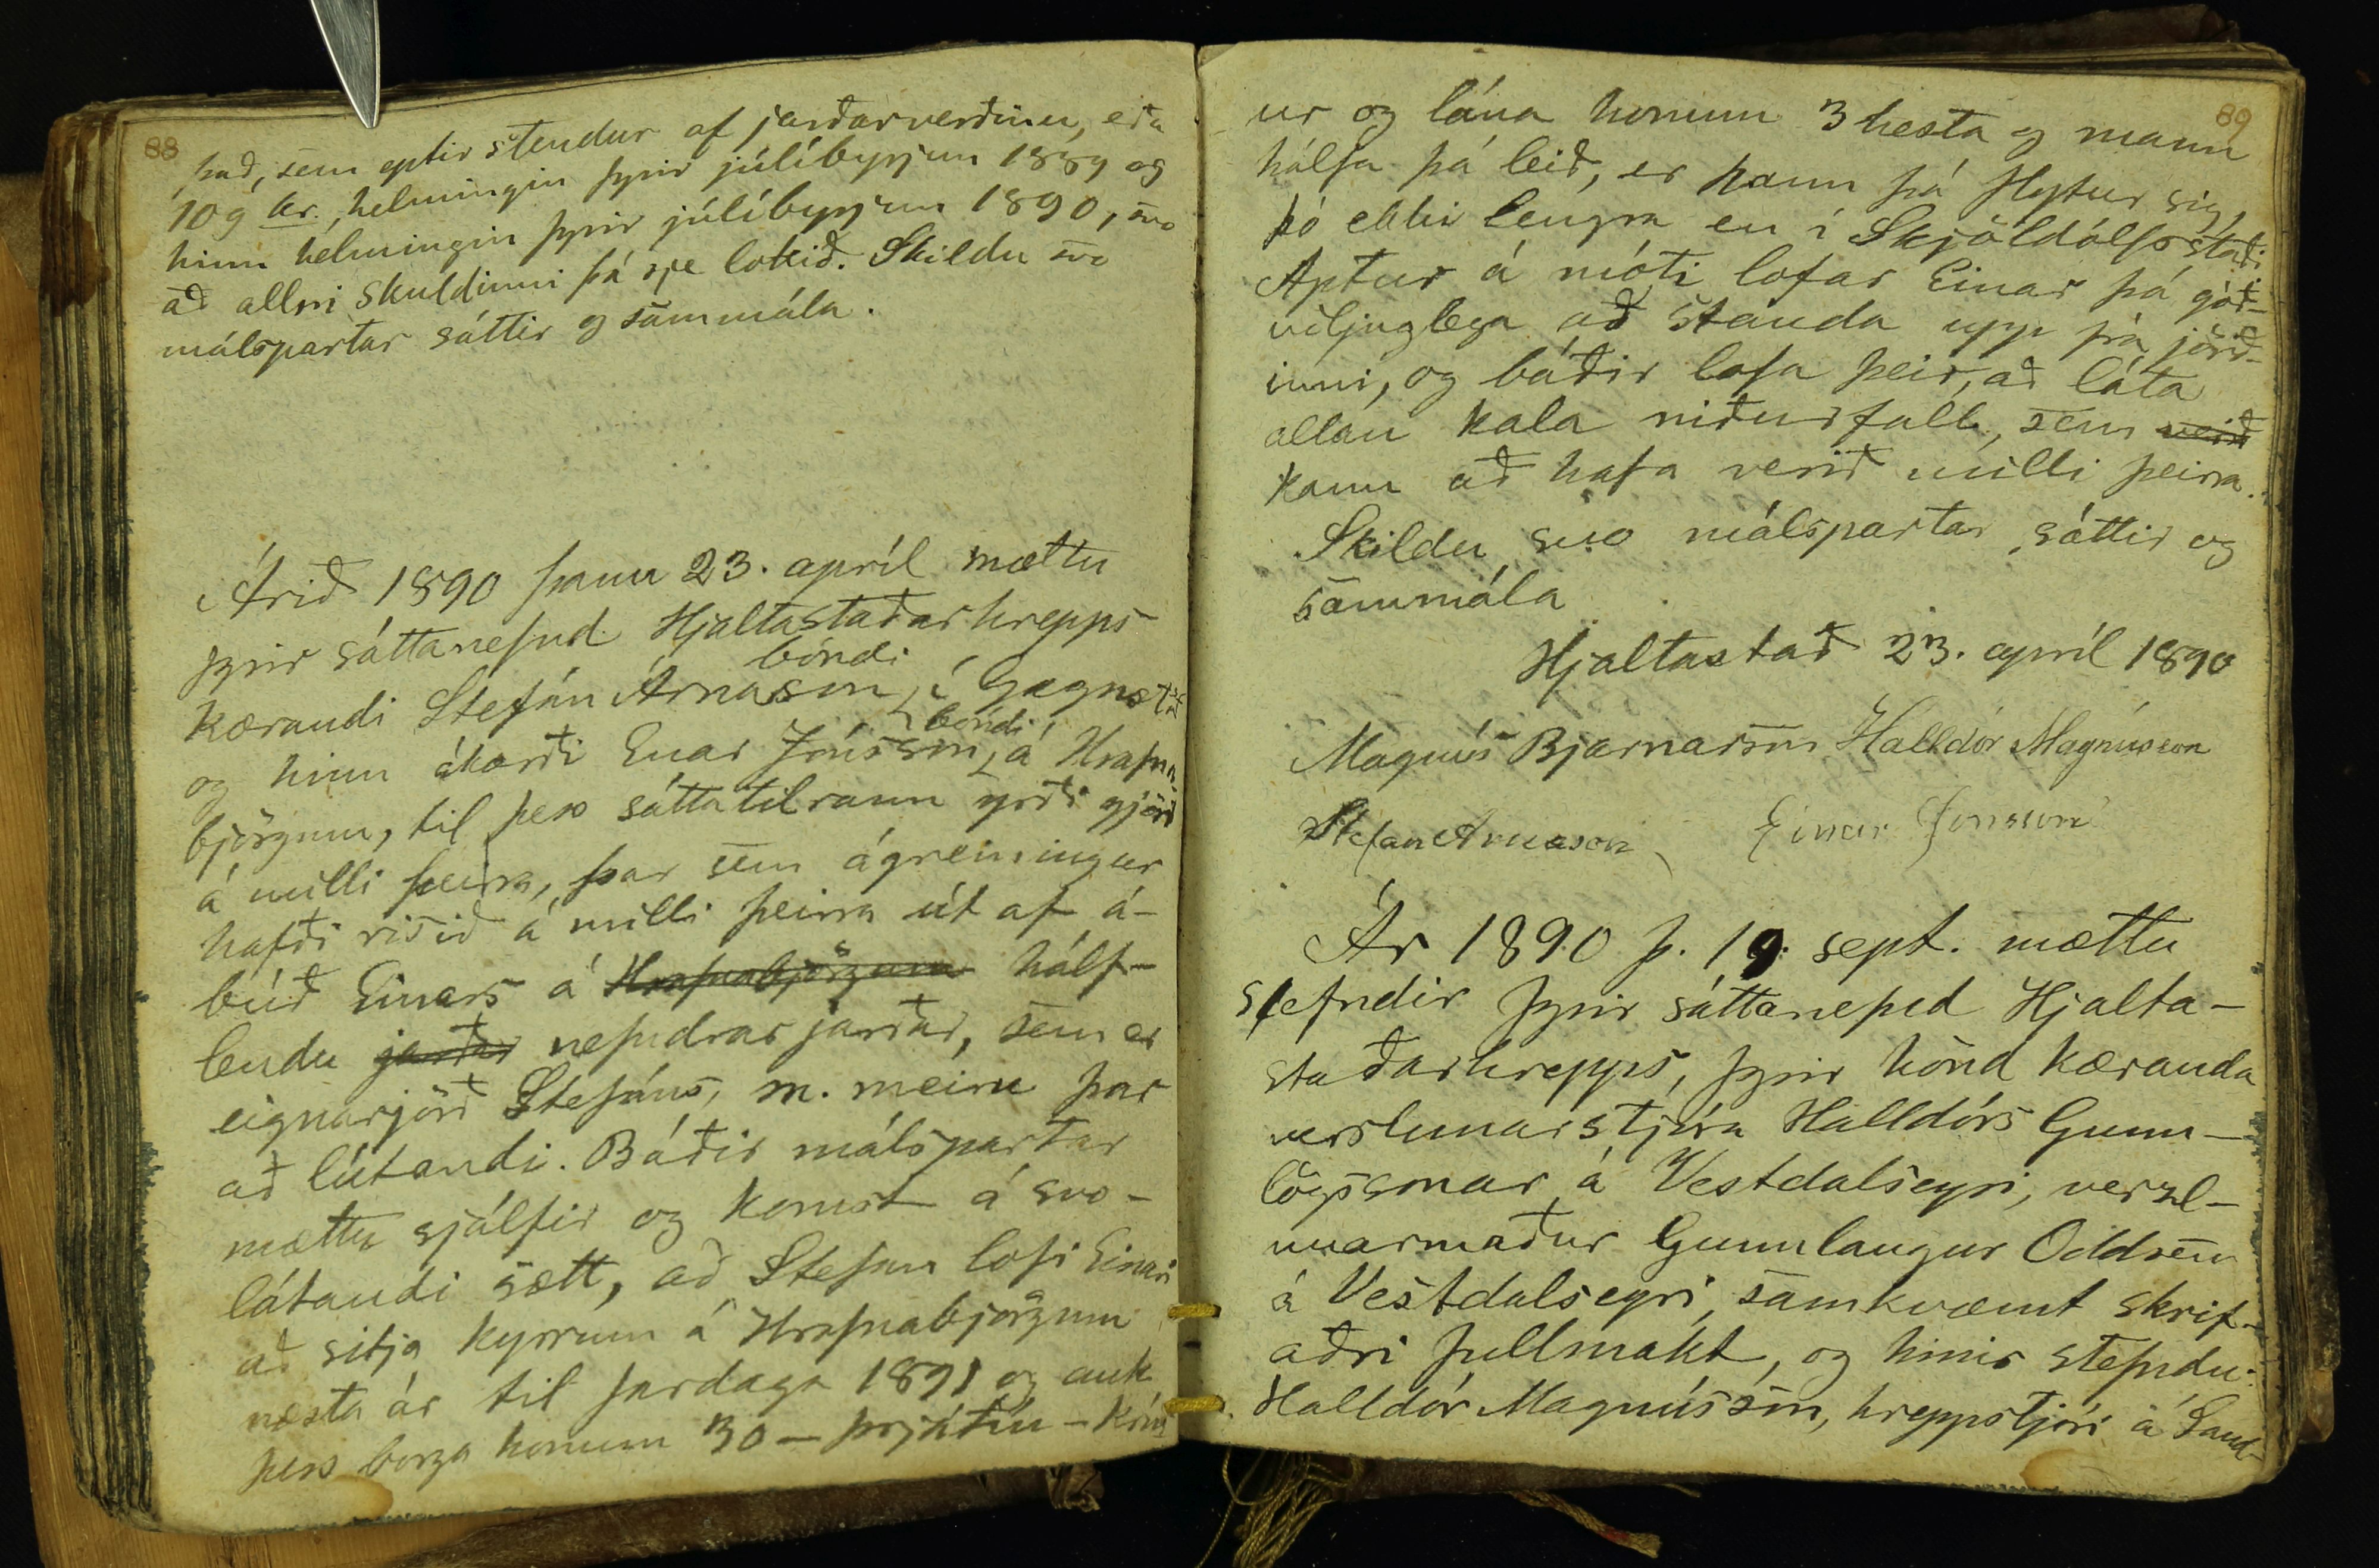 88
það, sem eptir stendur af jarðarverðinu, eða
109 kr., helmingin fyrir júlíbyrjun 1889 og
hinn helmingin fyrir júlíbyrjun 1890, svo
að allri skuldinni þá sje lokið. Skildu svo
málspartar sáttir og sammála.
Árið 1890 þann 23. apríl mættu
fyrir sáttanefnd Hjaltastaðarhrepps
kærandi Stefán Árnason, bóndi í Gagnstöð
og hinn ákærði Einar Jónsson, bóndi á Hrafna
björgum, til þess sáttatilraun yrði gjörð
á milli þeirra, þar sem ágreiningur
hafði risið á milli þeirra út af á-
búð Einars á Hrafnabjörgum hálf-
lendu jarðar nefndrar jarðar, sem er
eignarjörð Stefáns, m. meiru þar
að lútandi. Báðir málspartar
mættu sjálfir og komst á svo-
látandi sætt, að Stefán lofi Einari
að sitja kyrrum á Hrafnabjörgum
næsta ár til fardaga 1891 og auk
þess borga honum 30 – þrjátíu – krón
89
ur og lána honum 3 hesta og mann
hálfa þá leið, er hann þá flytur sig,
þó ekki lengra en í Skjöldólfsstaði
Aptur á móti lofar Einar þá góð-
viljuglega að standa upp frá jörð-
inni, og báðir lofa þeir, að láta
allan kala niðurfalla, sem verið
kann að hafa verið milli þeirra.
Skildu svo málspartar sáttir og
sammála
Hjaltastað 23. apríl 1890
Magnús Bjarnarson Halldór Magnússon
Stefan Arnason Einar Jonsson
Ár 1890 þ. 19. sept. mættu
stefndir fyrir sáttanefnd Hjalta-
staðarhrepps, fyrir hönd kæranda
verslunarstjóra Halldórs Gunn-
lögssonar á Vestdalseyri, verzl-
unarmaður Gunnlaugur Oddsen
á Vestdalseyri, samkvæmt skrif-
aðri fullmakt, og hinir stefndu:
Halldór Magnússon, hreppstjóri á Sand-